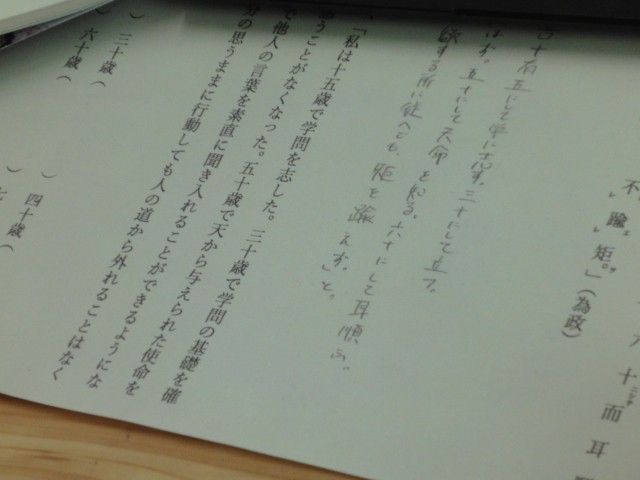 十而耳
不踰矩。」(為政)
十有五にして学に志す。三十にして立つ。
五十にして天命を知る。六十にして耳順ふ。
する所に従へども、矩を踰えず。と。
「私は十五歳で学問を志した。三十歳で学問の基礎を確
うことがなくなった。五十歳で天から与えられた使命を
で他人の言葉を素直に聞き入れることができるようにな
分の思うままに行動しても人の道から外れることはなく
) 三十歳( ) 四十歳(
) 六十歳( )